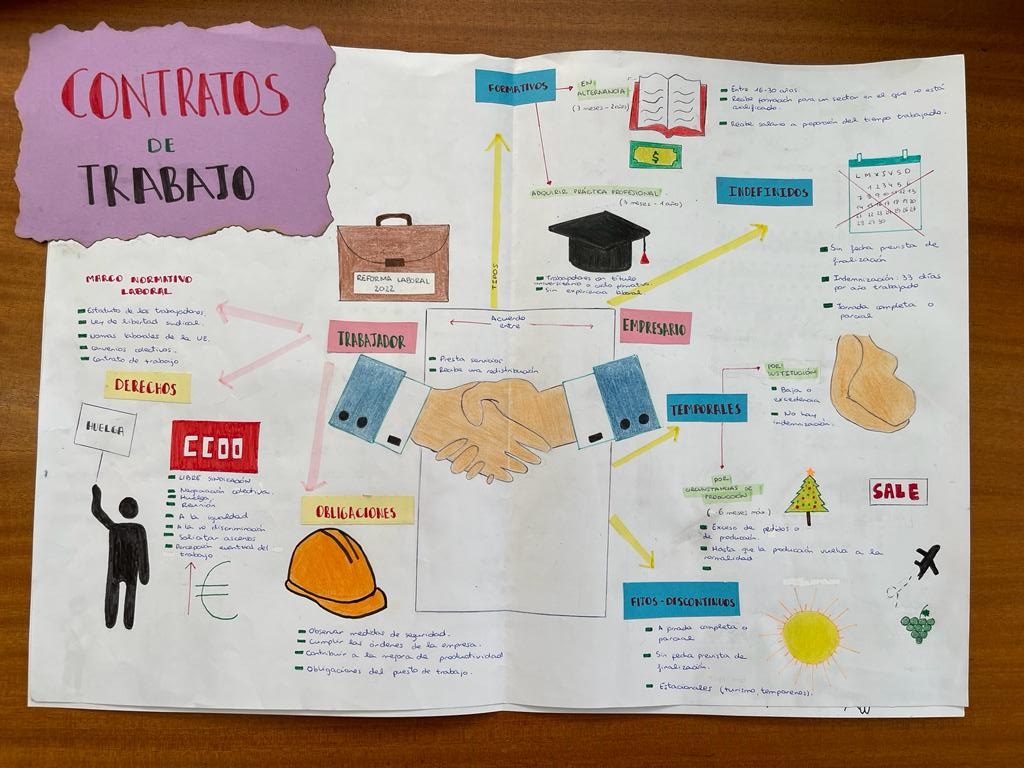 CONTRATOS
DE
TRABAJO
FORMATIVOS
EN
ALTERNANCIA
(3 meses - 2 años)
Entre 16-30 años.
Recibe formación para un sector en el que no está
cualificado.
Recibe salario a proporción del tiempo trabajado.
$
ADQUIRIR PRÁCTICA PROFESIONAL
(3 meses - 1 año)
Trabajadores con título
universitario o ciclo formativo.
Sin experiencia laboral.
INDEFINIDOS
L M X J V S D
1 2 3 4 5 6
7 8 9 10 11 12 13
14 15 16 17 18 19 20
21 22 23 24 25 26 27
28 29 30
Sin fecha prevista de
finalización
Indemnización: 33 días
por año trabajado
Jornada completa o
parcial
REFORMA LABORAL
2022
TIPOS
MARCO NORMATIVO
LABORAL
Estatuto de los trabajadores.
Ley de libertad sindical.
Normas laborales de la UE.
Convenios colectivos.
Contrato de trabajo
TRABAJADOR
Acuerdo
entre
EMPRESARIO
Presta servicios
Recibe una redistribución
DERECHOS
HUELGA
CCOO
LIBRE SINDICACIÓN
Negociación colectiva.
Huelga,
Reunión
A la igualdad
A la no discriminación
Solicitar ascenso
Percepción eventual del
trabajo
€
OBLIGACIONES
Observar medidas de seguridad.
Cumplir las órdenes de la empresa.
Contribuir a la mejora de productividad
Obligaciones del puesto de trabajo.
TEMPORALES
POR
SUSTITUCIÓN
Baja o
excedencia
No hay
indemnización.
POR
CIRCUNSTANCIAS DE
PRODUCCIÓN
(6 meses máx)
Exceso de pedidos o
de producción.
Hasta que la producción vuelva a la
normalidad
SALE
FIJOS-DISCONTINUOS
A jornada completa o
parcial
Sin fecha prevista de
finalización.
Estacionales (turismo, temporeros).